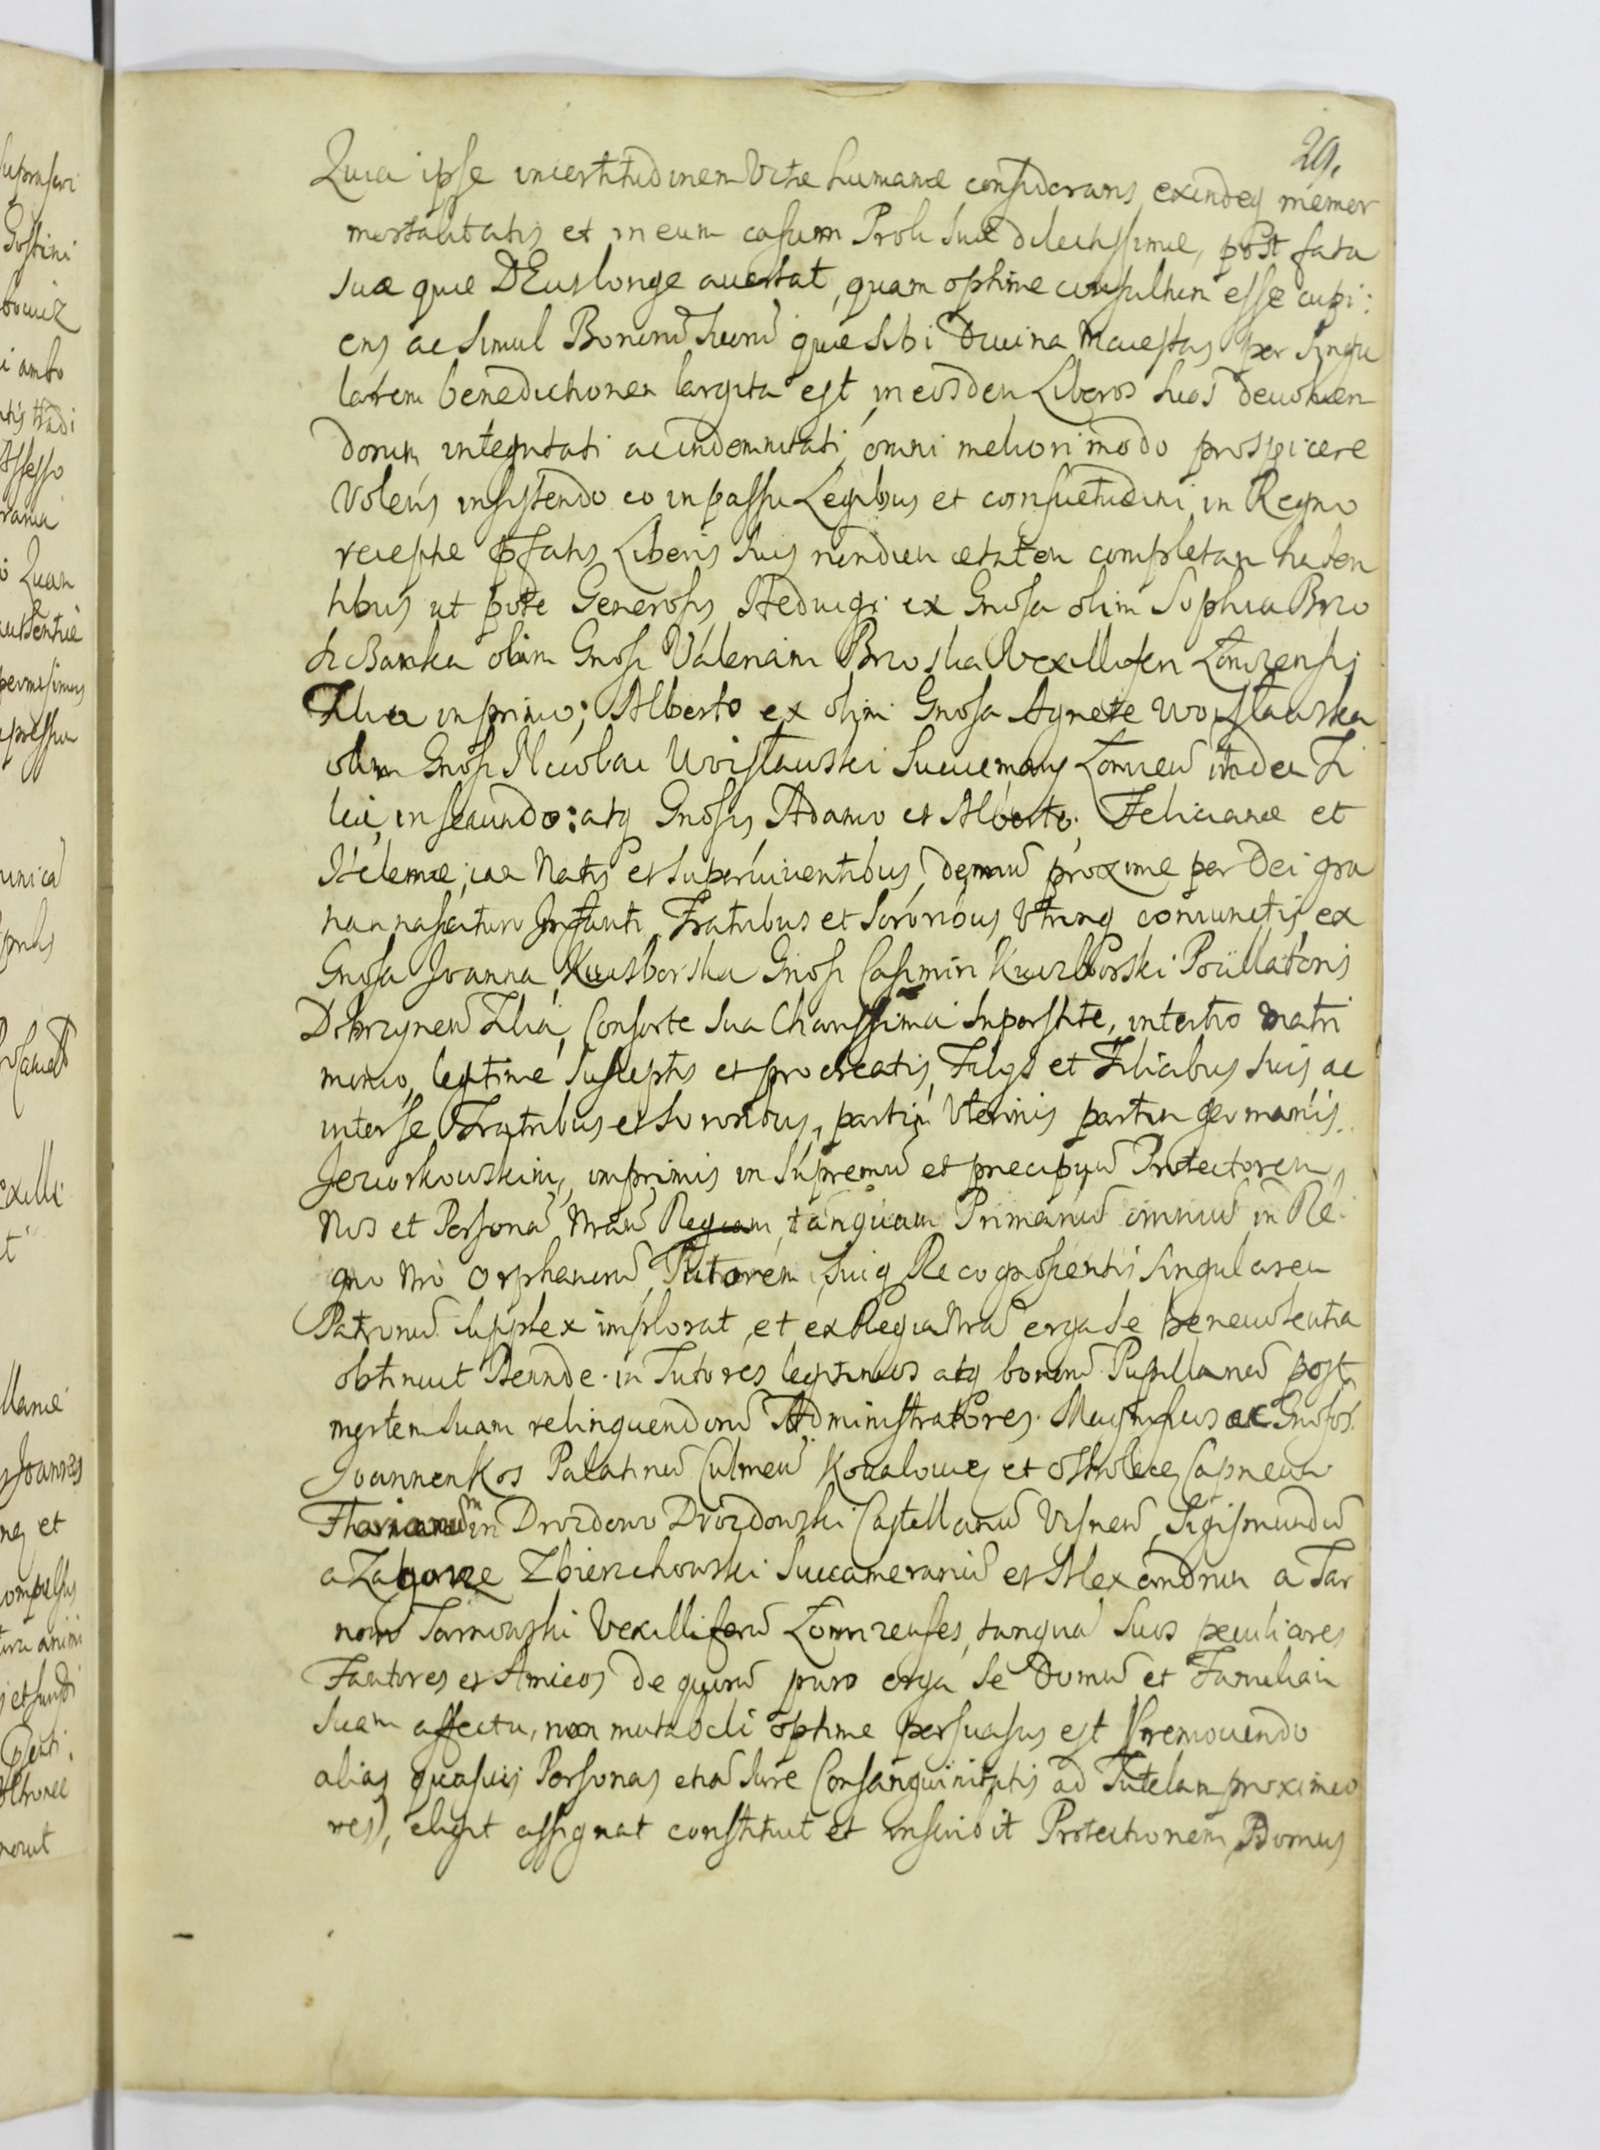 29.
Quia ipse incertitudinem Vitæ humanæ considerans, exindeq memor
mortalitatis et in eum casum Proli suæ dilectissimæ, post fata
sua quæ DEus longe auertat, quam optime consultum esse cupi:
ens ac simul Bonorũ suorũ quæ sibi Diuina Maiestas per singu
larem benedictionem largita est in eosdem Liberos suos deuoluen
dorum integritati ac indemnitati omni meliori modo prospicere
Volens insistendo eo in passu Legibus et consuetudini in Regno
receptæ pfatis Liberis suis nondum ætatem completam haben
tibus ut pote Generosis Heduigi ex Gnosa olim Sophia Brzo
olim Gnosi Valeriani Brzoska Vexilliferi Łomzensis
Filia in primo; Alberto ex olim Gnosa Agnete Woisławska
olim Gnosi Nicolai Woisławski Succamerarij Łomzen̄ itidem Fi
lia, in secundo: atq Gnosis Adamo et Alberto. Felicianæ et
Helenæ, iam Natis et superuiuentibus, demũ proxime per Dei gra
tiam nascituro Infanti Fratribus et Sororibus Vtrinq coniunctis, ex
Gnosa Joanna Kuczborska Gnosi Casimiri Kuczborski Pocillatoris
Dobrzynen̄ Filia, Consorte sua Charissima superstite, in tertio matri
monio, legitime susceptis et procreatis, Filijs et Filiabus suis, ac
inter se Fratribus et Sororibus, partim Vterinis partim germanis
Jeziorkowskim, imprimis in supremũ et præcipuũ Protectorem
Nos et Personã Nrãm Regiam, tanquam Primariũ omniũ in Re
gno Nro Orphanorũ Tutorem, suiq Recognoscentis singularem
Patronũ supplex implorat, et ex Regia Nra erga se beneuolentia
obtinuit Deinde in Tutores legitimos atq bonorũ Pupillariũ post
mortem suam relinquendorũ Administratores. Magnificos ac Gnosos
Joannem Kos Palatinũ Culmen̄ Kowalouien̄ et Ostrolecen̄ Capneum
in Drozdowo Drozdowski Castellanũ Visnen̄, Sigismundũ
a Zaborze Zbierzchowski Succamerariũ et Alexandrum a Tar
now Tarnowski Vexilliferũ Łomzenses, tanquã suos peculiares
Fautores et Amicos de quorũ puro erga se Domũ et Familiam
suam affectu, non mutabili optime persuasus est (remouendo
alias quasuis Personas etiã Jure Consanguinitatis ad Tutelam proximio
res), eligit assignat constituit et inscribit Protectionem Domus